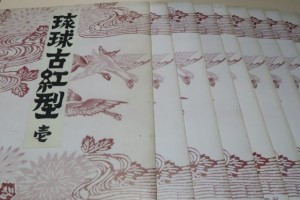 琉球古紅型
壱